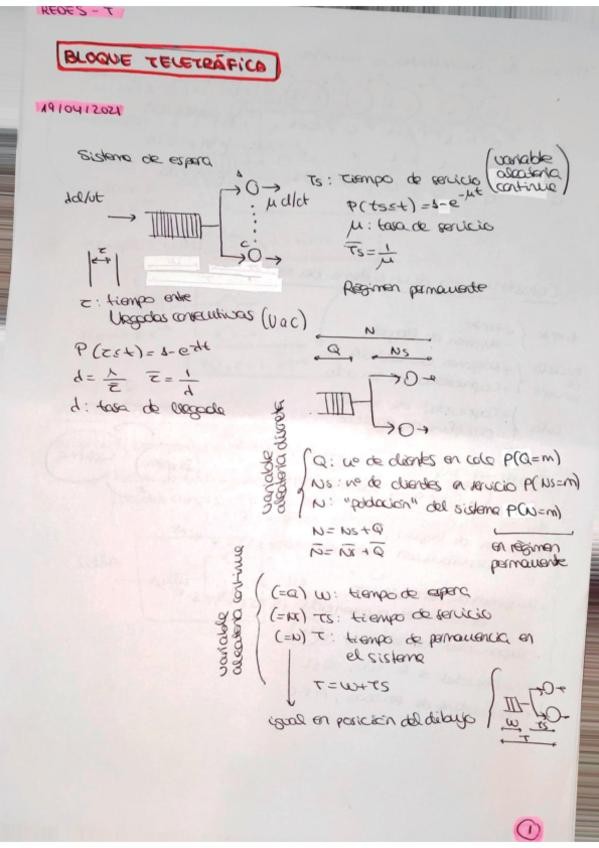 REDES - T
BLOQUE TELETRÁFICO
19/04/2021
Sistema de espera
λcl/ut
1
μ cl/ut
C
Ts: tiempo de servicio (variable aleatoria continua)
P(ts≤t) = 1-e^-μt
μ: tasa de servicio
T̄s = 1/μ
Régimen permanente
τ
τ: tiempo entre
llegadas consecutivas (vac)
P(τ≤t) = 1-e^-λt
λ = 1/τ̄   τ̄ = 1/λ
λ: tasa de llegada
N
Q   Ns
variable aleatoria discreta
Q: nº de clientes en cola P(Q=m)
Ns: nº de clientes en servicio P(Ns=m)
N: "población" del sistema P(N=m)
N = Ns+Q
N̄ = N̄s + Q̄
en régimen
permanente
variable aleatoria continua
(=Q) W: tiempo de espera
(=Ns) Ts: tiempo de servicio
(=N) T: tiempo de permanencia en
el sistema
T = W+TS
igual en posición del dibujo
W   TS
T
1